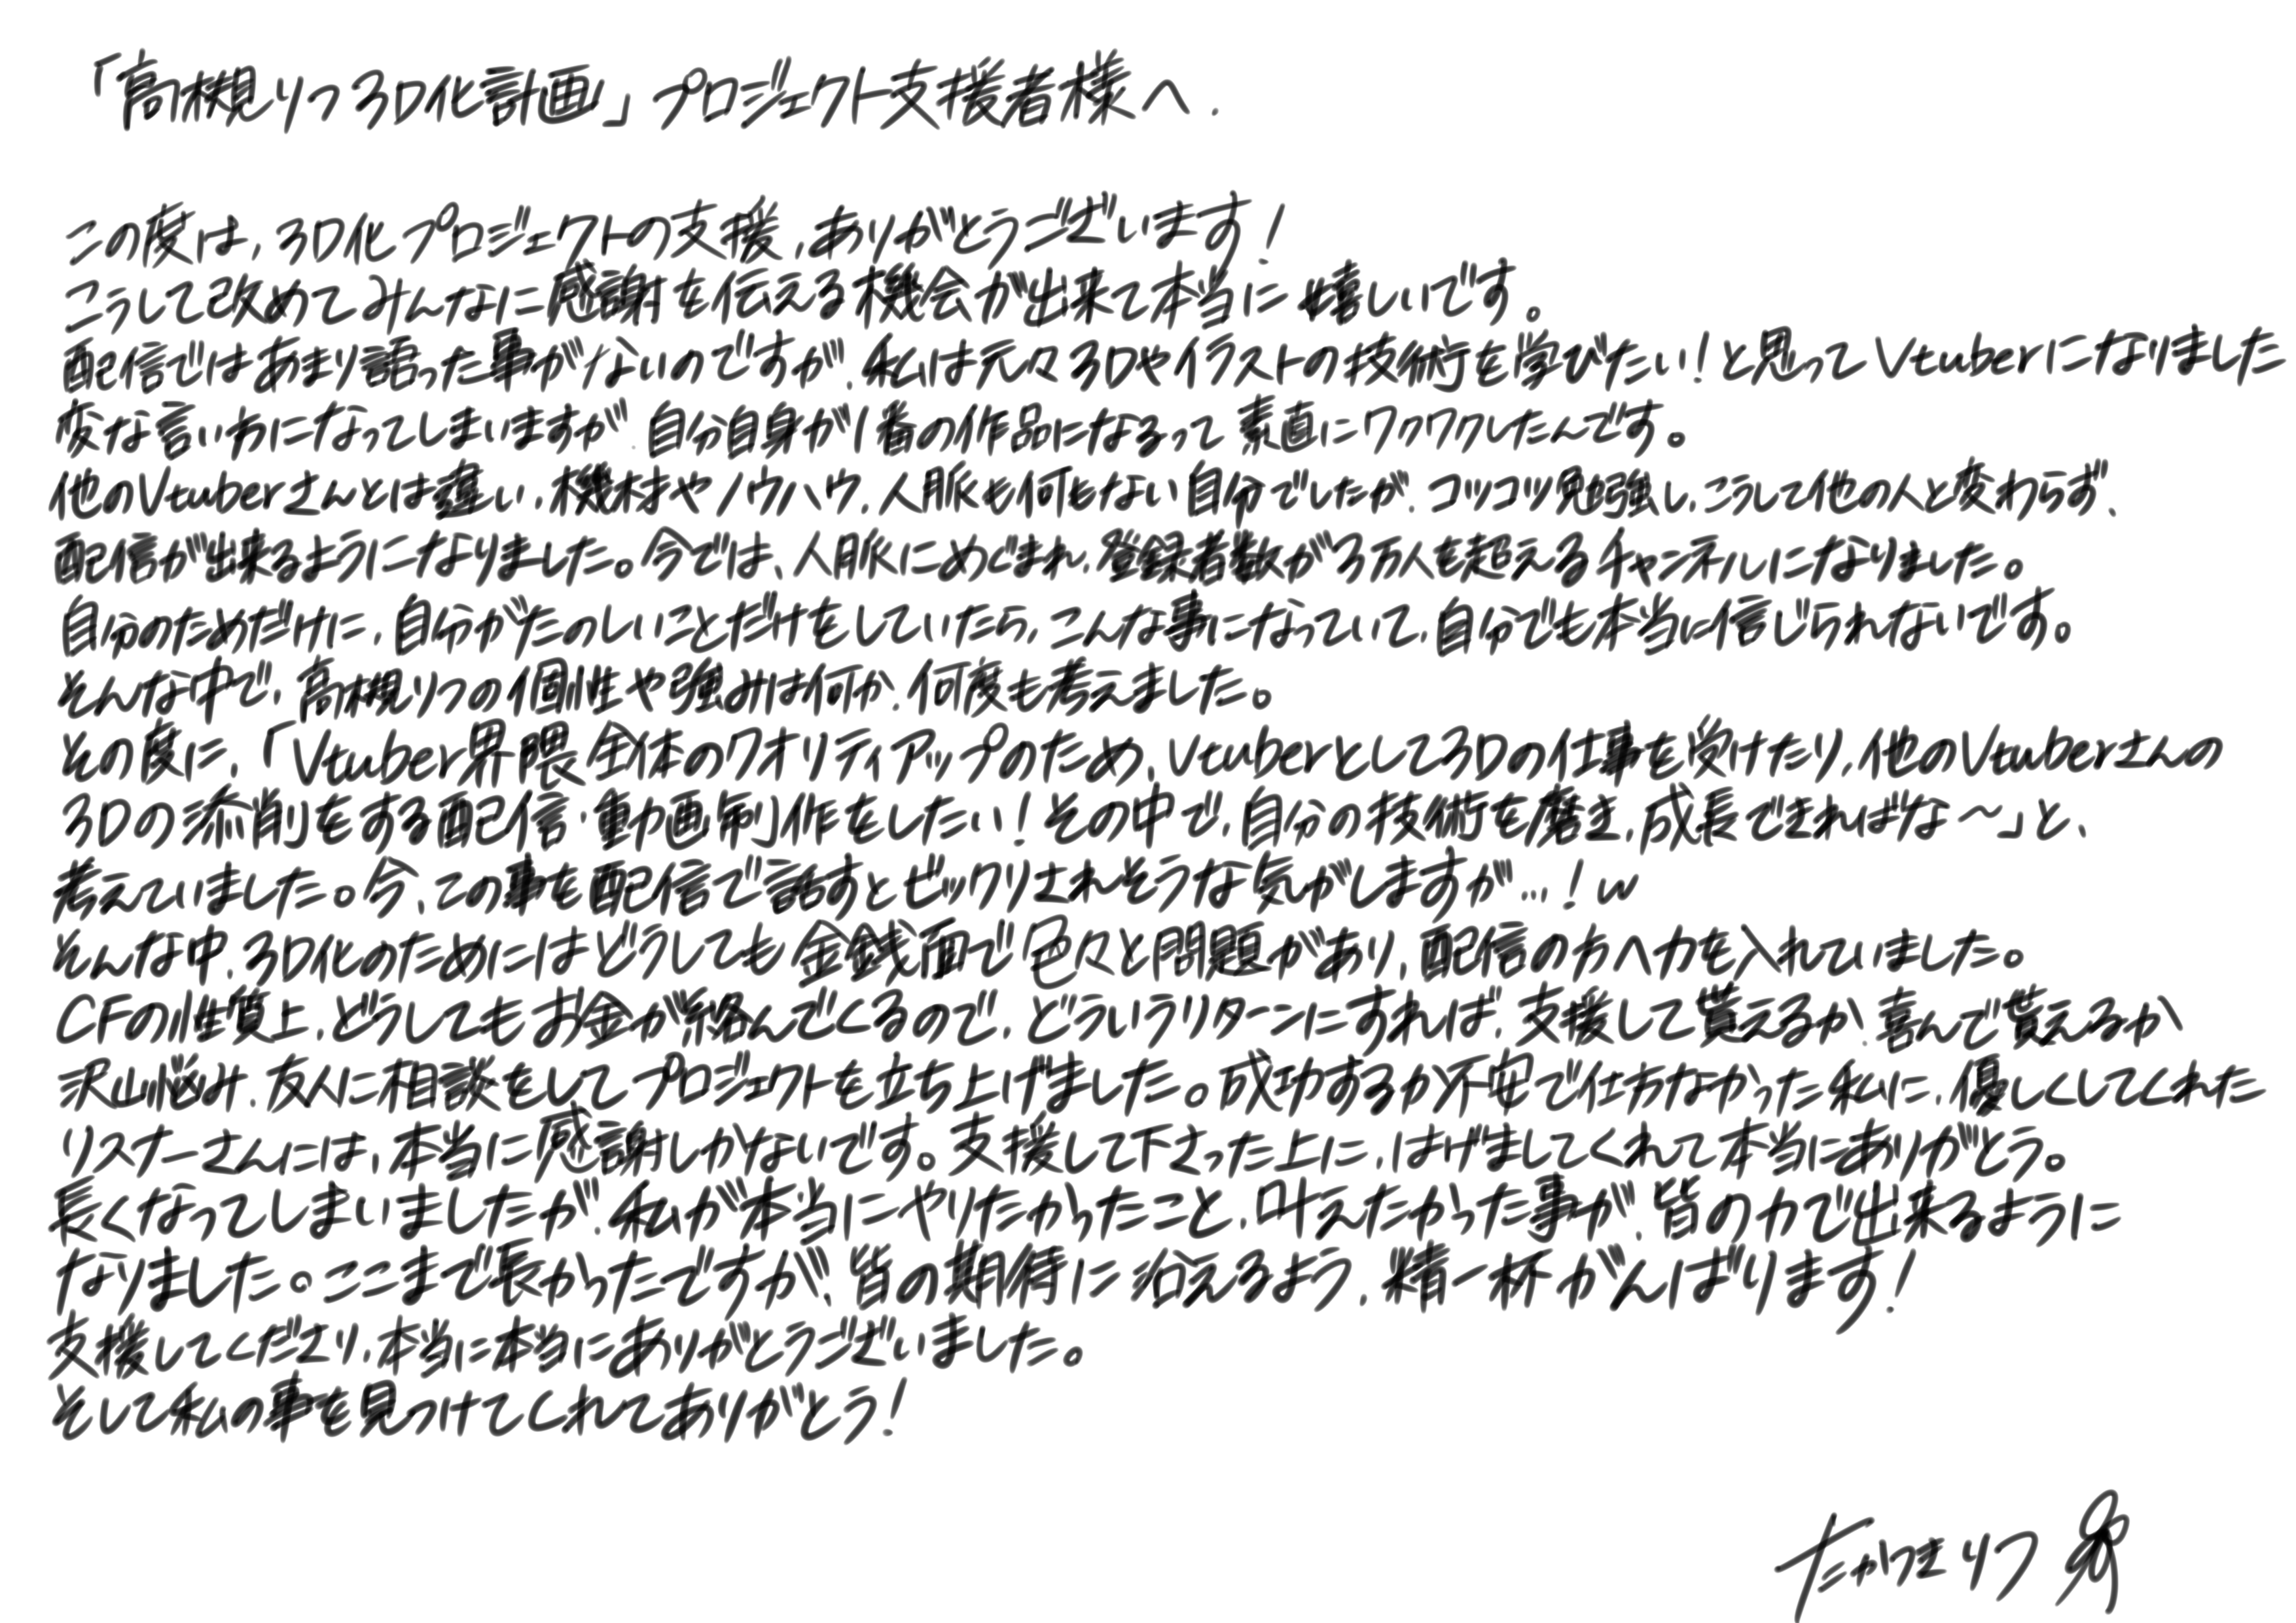 「高槻りつ3D化計画」プロジェクト支援者様へ.
この度は,3D化プロジェクトの支援,ありがとうございます!
こうして改めてみんなに感謝を伝える機会が出来て本当に嬉しいです。
配信ではあまり語った事がないのですが,私は元々3Dやイラストの技術を学びたい!と思ってVtuberになりました
変な言い方になってしまいますが,自分自身が1番の作品になるって素直にワクワクしたんです。
他のVtuberさんとは違い,機材やノウハウ,人脈も何もない自分でしたが,コツコツ勉強し,こうして他の人と変わらず、
配信が出来るようになりました。今では、人脈にめぐまれ,登録者数が3万人を超えるチャンネルになりました。
自分のためだけに,自分がたのしいことだけをしていたら,こんな事になっていて,自分でも本当に信じられないです。
そんな中で,高槻りつの個性や強みは何か,何度も考えました。
その度に,「Vtuber界隈全体のクオリティアップのため、Vtuberとして3Dの仕事を受けたり,他のVtuberさんの
3Dの添削をする配信・動画制作をしたい!その中で,自分の技術を磨き,成長できればな〜」と、
考えていました。今、この事を配信で話すとビックリされそうな気がしますが…!w
そんな中,3D化のためにはどうしても金銭面で色々と問題があり,配信の方へ力を入れていました。
CFの性質上,どうしてもお金が絡んでくるので,どういうリターンにすれば,支援して貰えるか,喜んで貰えるか
沢山悩み,友人に相談をしてプロジェクトを立ち上げました。成功するか不安で仕方なかった私に,優しくしてくれた
リスナーさんには,本当に感謝しかないです。支援して下さった上に,はげましてくれて本当にありがとう。
長くなってしまいましたが,私が本当にやりたかったこと,叶えたかった事が,皆の力で出来るように
なりました。ここまで長かったですが,皆の期待に沿えるよう,精一杯がんばります!
支援してくださり,本当に本当にありがとうございました。
そして私の事を見つけてくれてありがとう!
たかつきりつ